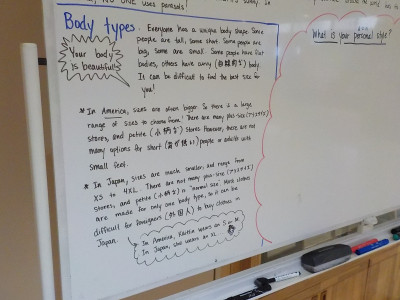 NO ONE uses parasols!
Body types:
Everyone has a unique body shape. Some
people are tall, some short. Some people are
big, some are small. Some people have flat
bodies, others have curvy body.
It can be difficult to find the best size for
you!
Your
body is
beautiful!
* In America, sizes are often bigger. So there is a large
range of sizes to choose from! There are many plus-size
stores, and petite stores. However, there are not
many options for short people or adults with
small feet.
* In Japan, sizes are much smaller, and range from
XS to 4XL. There are not many plus-size
stores, and petite is "normal size". Most clothes
are made for only one body type, so it can be
difficult for foreigners (外国人) to buy clothes in
Japan.
In America, wears an S or M
In Japan, she wears an XL
What is your personal style?